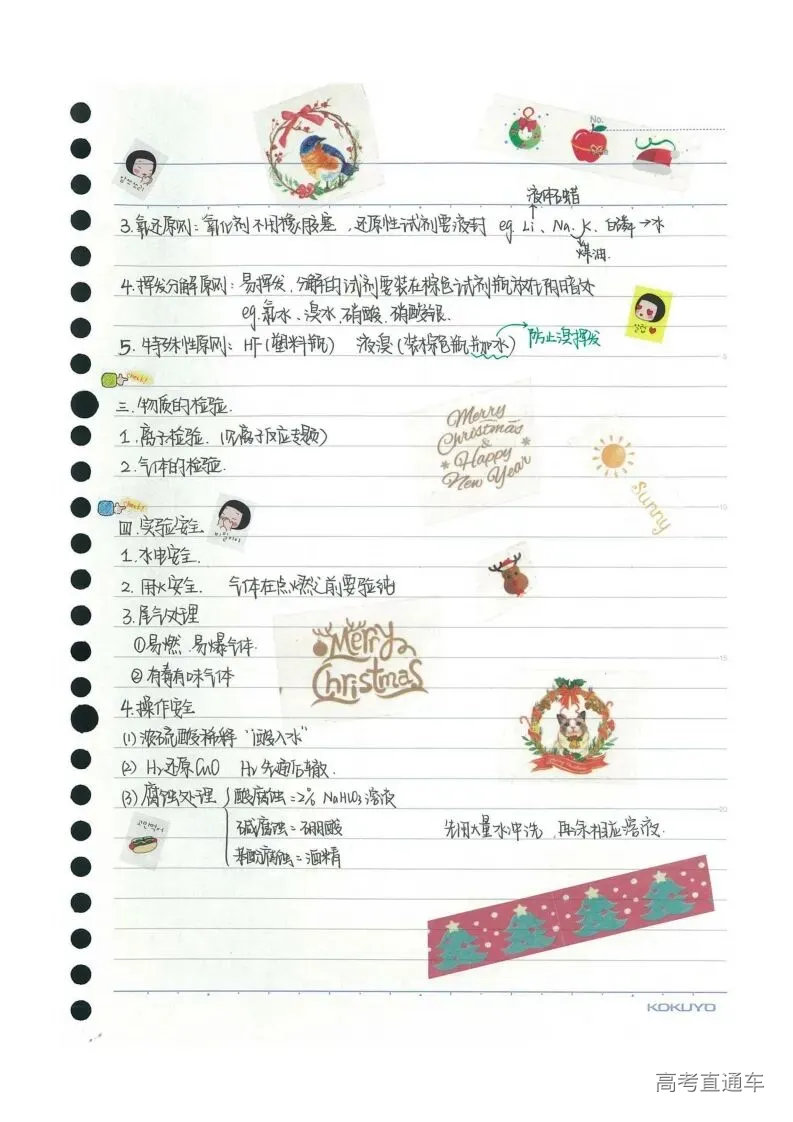 No.
Date
液体石蜡
3.氧化还原原则：氧化剂不用橡胶塞，还原性试剂要液封 eg. Li、Na、K、白磷→水
煤油.
4.挥发分解原则：易挥发、分解的试剂要装在棕色试剂瓶放在阴暗处
eg.氯水、溴水、硝酸、硝酸银.
5.特殊性原则：HF(塑料瓶) 液溴(装棕色瓶并加水) 防止溴挥发
check!
三.物质的检验.
1.离子检验.（见离子反应专题）
2.气体的检验.
Merry
Christmas
&
Happy
New Year
Sunny
check!
四.实验安全
1.水电安全.
2.用火安全. 气体在点燃之前要验纯
3.尾气处理
①易燃、易爆气体.
②有毒有味气体
Merry
Christmas
4.操作安全
(1)浓硫酸稀释“酸入水”
(2) H₂还原CuO H₂先通后撤.
(3)腐蚀处理 酸腐蚀=2% NaHCO₃溶液
碱腐蚀=硼酸 先用大量水冲洗，再涂相应溶液.
苯酚腐蚀=酒精
KOKUYO
高考直通车